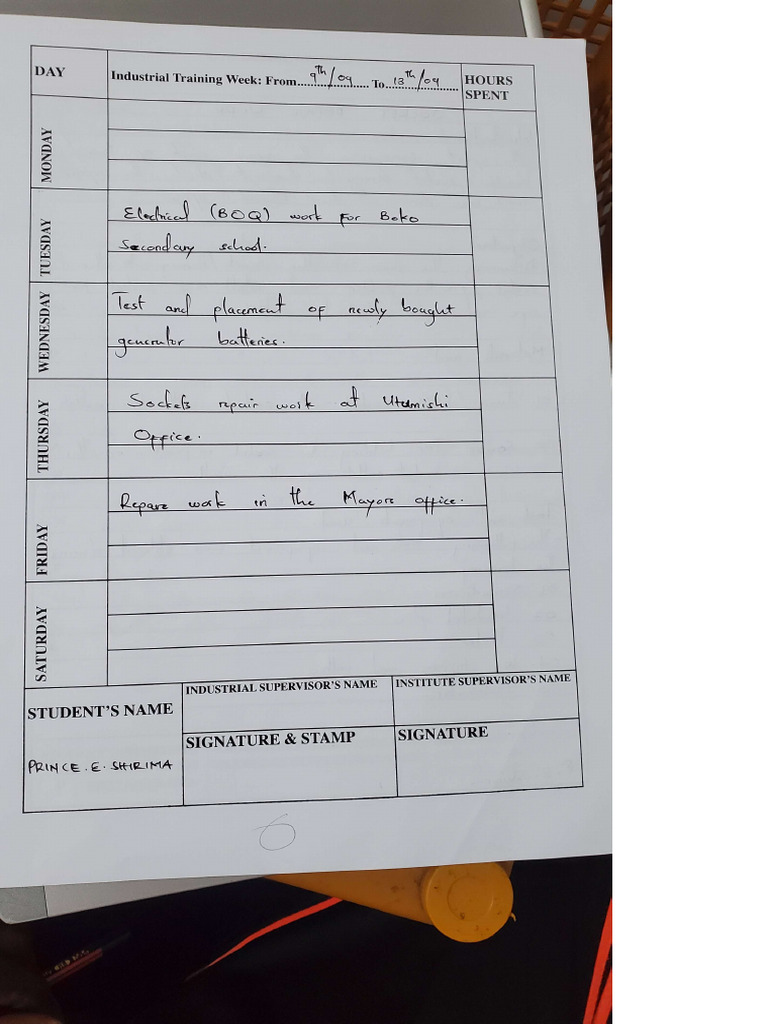 DAY
Industrial Training Week: From 9th/09 To 13th/09
HOURS
SPENT
MONDAY
TUESDAY
Electrical (BOQ) work for Boko
Secondary school.
WEDNESDAY
Test and placement of newly bought
generator batteries.
THURSDAY
Sockets repair work at Utumishi
Office.
FRIDAY
Repare work in the Mayors office.
SATURDAY
STUDENT'S NAME
PRINCE.E.SHIRIMA
INDUSTRIAL SUPERVISOR'S NAME
SIGNATURE & STAMP
INSTITUTE SUPERVISOR'S NAME
SIGNATURE
6